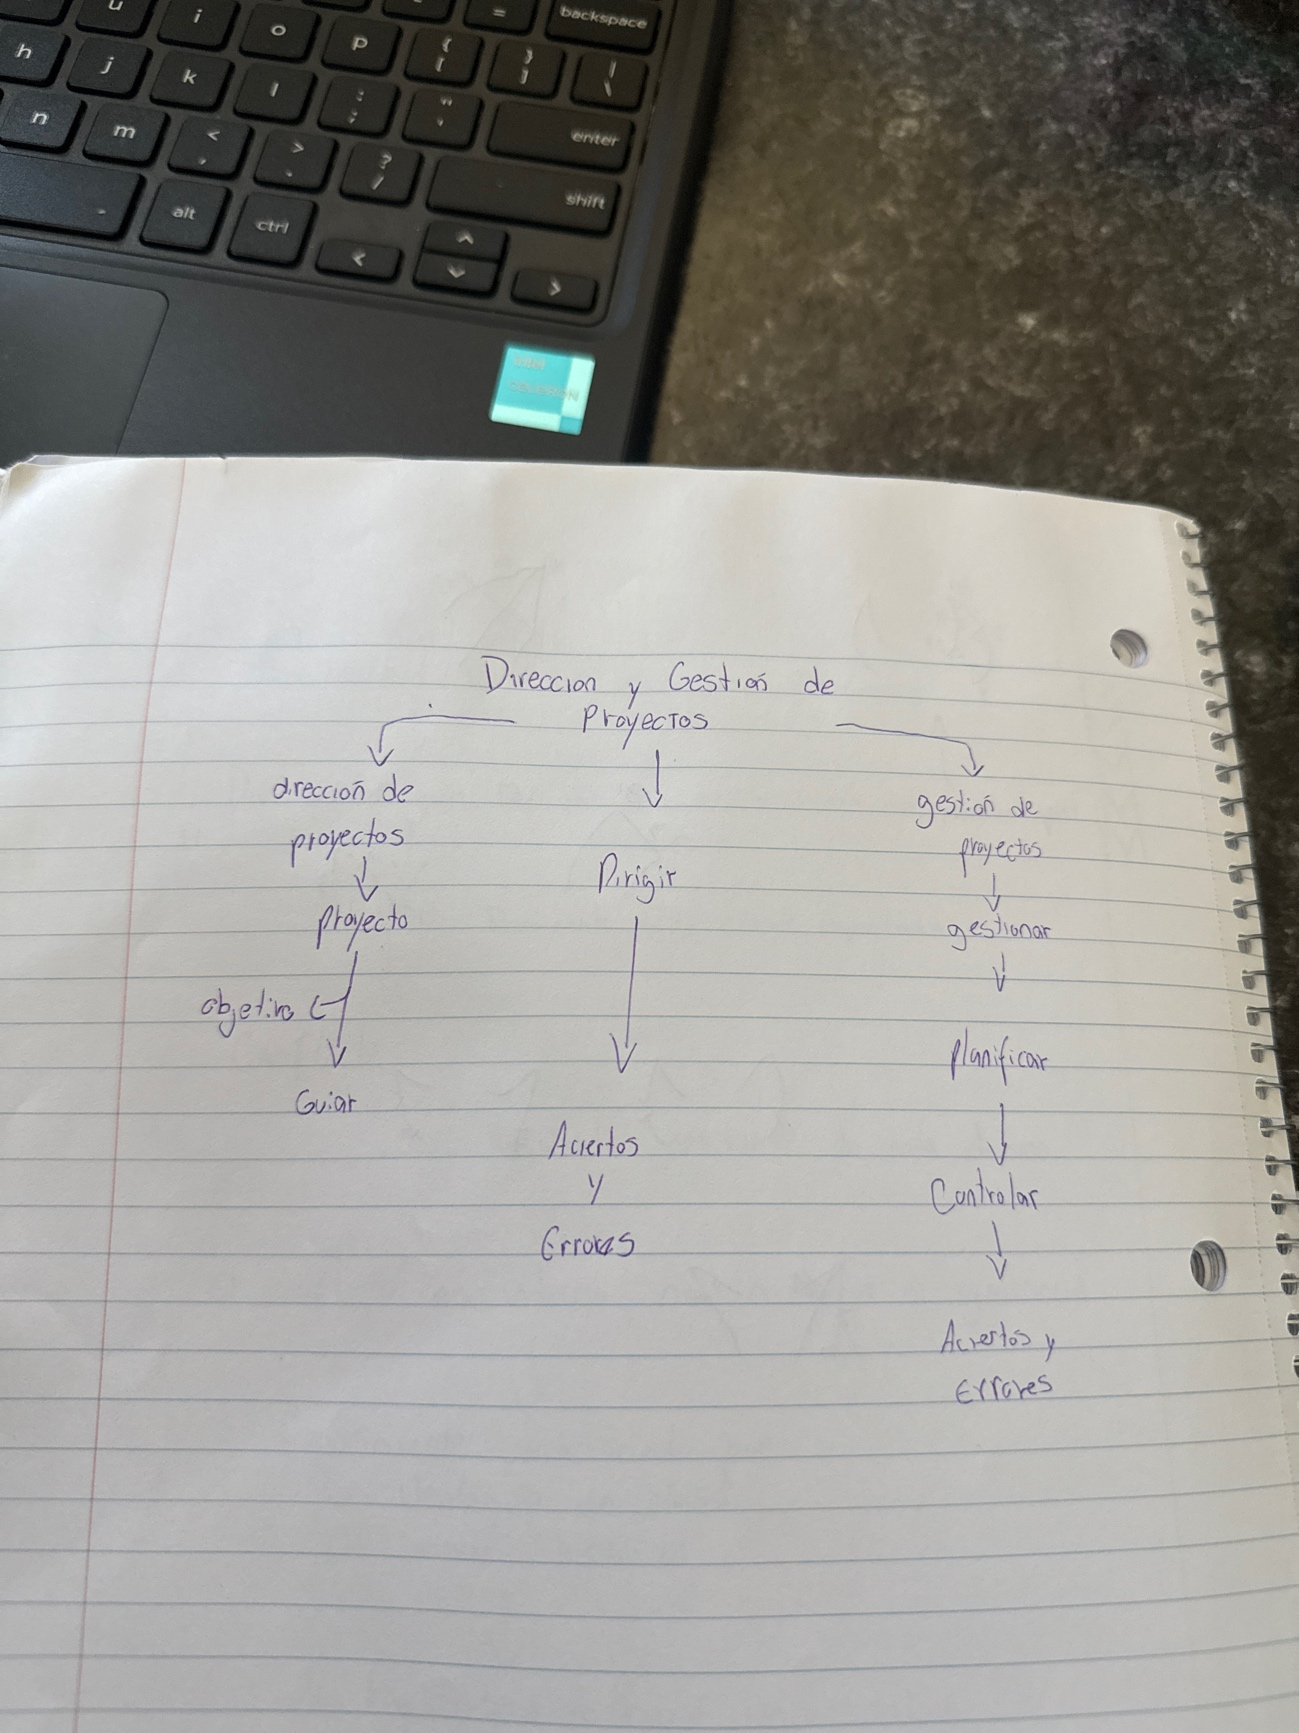 backspace
u i o p { [ } ] | \
h j k l : ; " ' enter
n m < , > . ? / shift
alt ctrl < ^ v >
intel
CELERON
Direccion y Gestión de
Proyectos
dirección de
proyectos
proyecto
objetivo
Guiar
Dirigir
Aciertos
y
Errores
gestión de
proyectos
gestionar
planificar
Controlar
Aciertos y
Errores